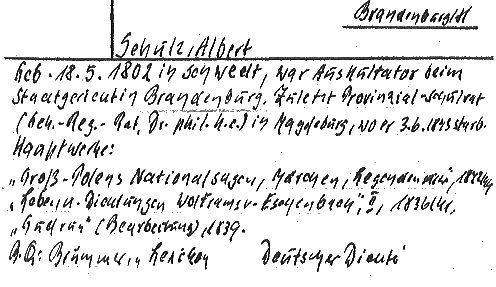 Brandenburg/H
Schulz, Albert
Geb. 18. 5. 1802 in Schwedt, war Auskultator beim
Stadtgericht in Brandenburg. Zuletzt Provinzial-Schulrat
(Geh.-Reg.-Rat, Dr. phil. h.c.) in Magdeburg, wo er 3.6.1893 starb.
Hauptwerke:
„Groß-Polens Nationalsagen, Märchen, Legenden 
„Leben u. Dichtungen Wolframs v. Eschenbach", II, 1836
„Gudrun" (Bearbeitung), 1839.
B.Q: Brümmer, Lexikon Deutscher Dichter